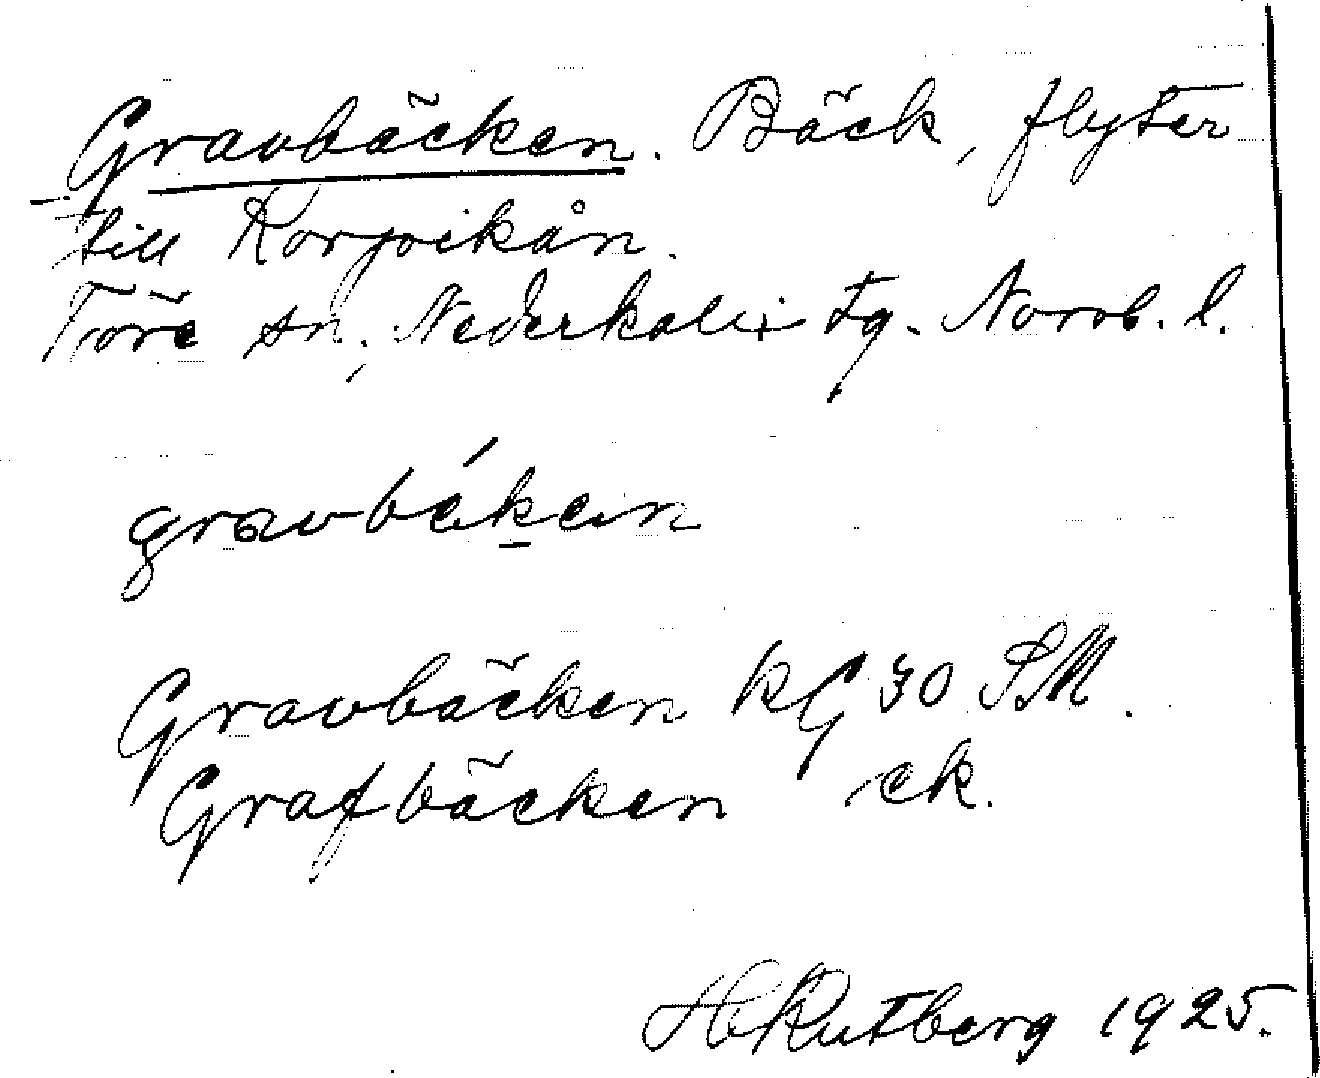 Gravbäcken. Bäck, flyter
till Korpvikån.
Töre sn, Nederkalix tg. Norrb. l.
gravbékein
Gravbäcken kG 30 SM.
Grafbäcken ek.
H Rutberg 1925.